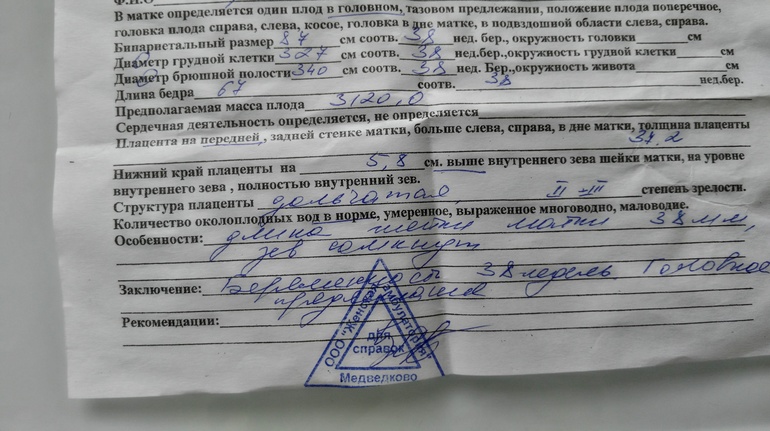 Ф.И.О
В матке определяется один плод в головном, тазовом предлежании, положение плода поперечное,
головка плода справа, слева, косое, головка в дне матке, в подвздошной области слева, справа.
Бипариетальный размер 87 см соотв. 38 нед. бер., окружность головки см
Диаметр грудной клетки 327 см соотв. 38 нед.бер.,окружность грудной клетки см
Диаметр брюшной полости 340 см соотв. 38 нед. Бер.,окружность живота см
Длина бедра 67 соотв. 38 нед.бер.
Предполагаемая масса плода 3120,0
Сердечная деятельность определяется, не определяется
Плацента на передней, задней стенке матки, больше слева, справа, в дне матки, толщина плаценты
37,2
Нижний край плаценты на 5,8 см. выше внутреннего зева шейки матки, на уровне
внутреннего зева , полностью внутренний зев.
Структура плаценты дольчатая II-III степень зрелости.
Количество околоплодных вод в норме, умеренное, выраженное многоводно, маловодие.
Особенности: длина шейки матки 38 мм,
зев сомкнут
Заключение: Беременность 38 недель. Головное
предлежание
Рекомендации:
ООО "Женская амбулатория"
для
справок
Медведково